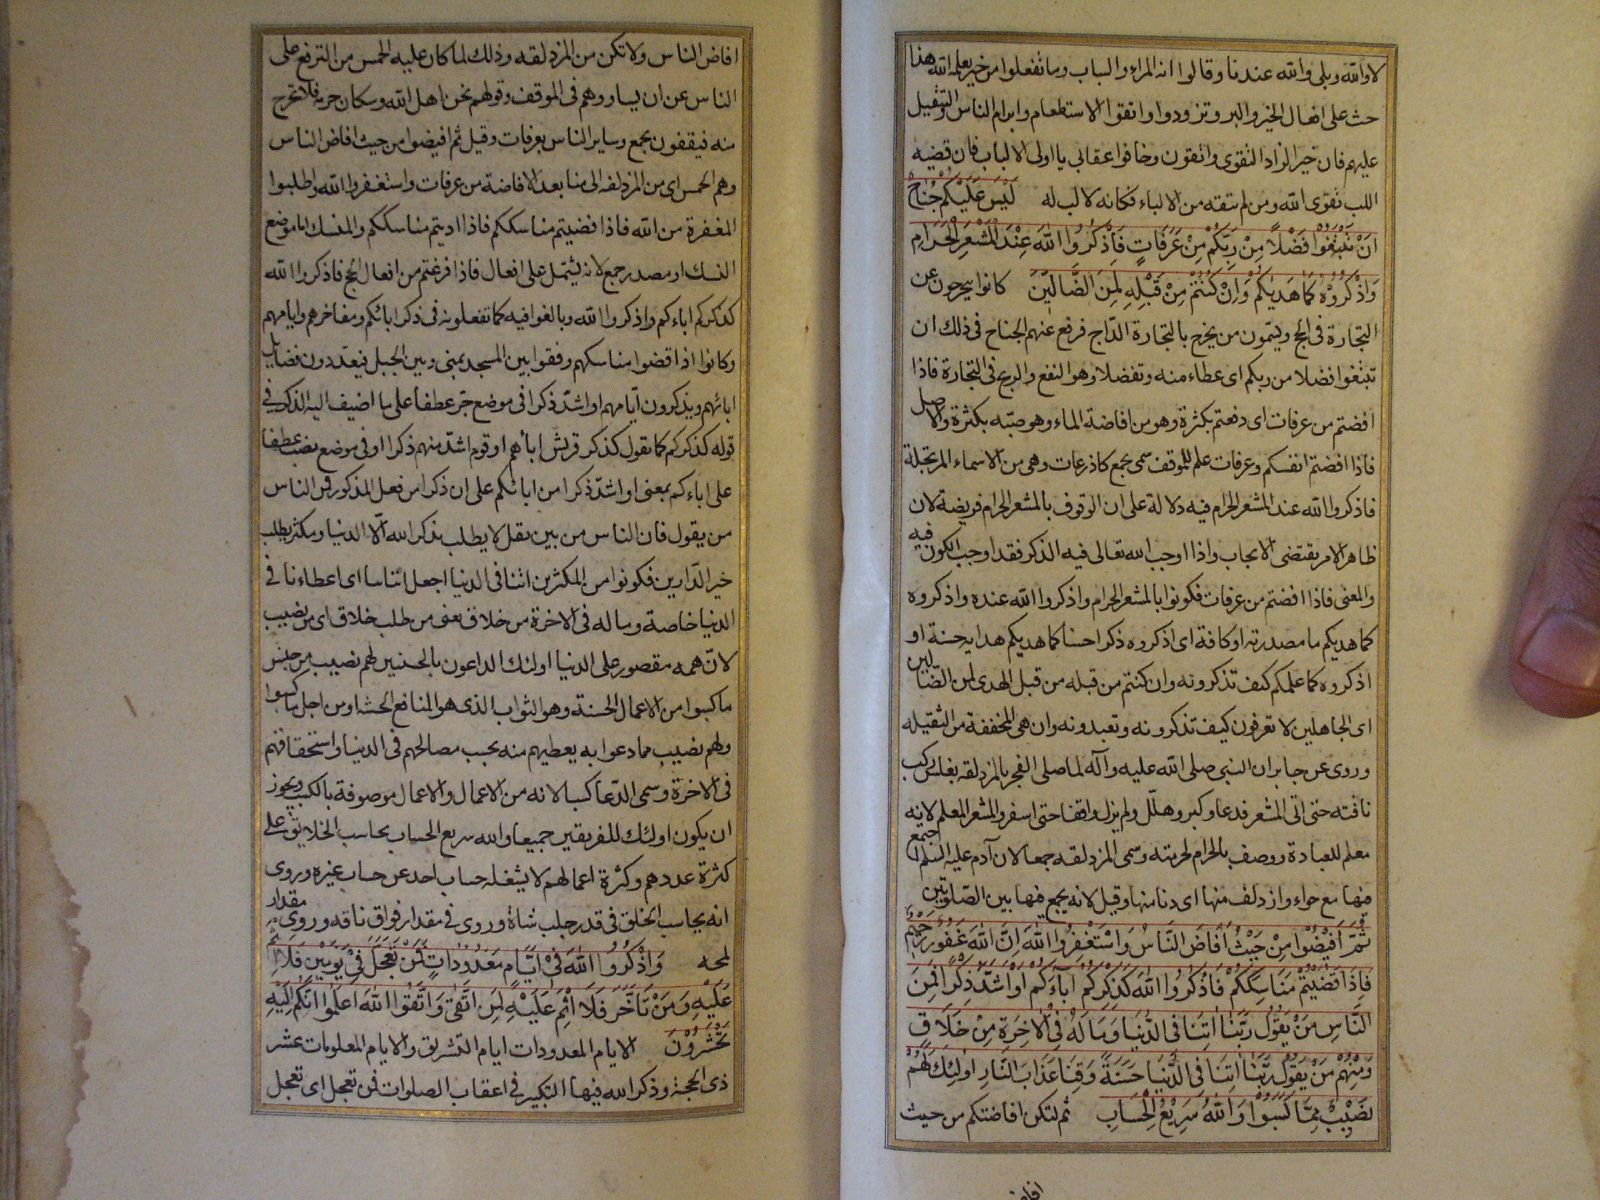 لا والله وبلى والله عندنا وقالوا انه المراء والسباب وما تفعلوا من خير يعلمه الله هذا
حث على افعال الخير والبر وتزودوا واتقوا الاستطعام وابرام الناس والتثقيل
عليهم فان خير الزاد التقوى واتقون وخافوا عقابي يا اولى الالباب فان قضيه
اللب تقوى الله ومن لم يتقه من الالباء فكانه لا لب له لَيْسَ عَلَيْكُمْ جُنَاحٌ
اَنْ تَبْتَغُوْا فَضْلاً مِنْ رَبِّكُمْ مِنْ عَرَفَاتٍ فَاَذْكُرُوا اللّهَ عِنْدَ الْمَشْعَرِ الْحَرَامِ
وَاذْكُرُوْهُ كَمَا هَدٰيكُمْ وَاِنْ كُنْتُمْ مِنْ قَبْلِهِ لَمِنَ الضَّالّيْنَ كانوا يتحرجون عن
التجارة فى الحج ويسمون من يخرج بالتجارة الداج فرفع عنهم الجناح فى ذلك ان
تبتغوا فضلا من ربكم اى عطاء منه وتفضلا وهو النفع والربح فى التجارة فاذا
افضتم من عرفات اى دفعتم بكثرة وهو من افاضة الماء وهو صبّه بكثرة والاصل
فاذا افضتم انفسكم وعرفات علم للموقف سمى بجمع كاذرعات وهى من الاسماء المرتجلة
فاذكروا الله عند المشعر الحرام فيه دلالة على ان الوقوف بالمشعر الحرام فريضة لان
ظاهر الامر يقتضى الايجاب واذا اوجب الله تعالى فيه الذكر فقد اوجب الكون فيه
والمعنى فاذا افضتم من عرفات فكونوا بالمشعر الحرام واذكروا الله عنده واذكروه
كما هديكم ما مصدريه او كافة اى اذكروه ذكرا حسنا كما هديكم هداية حسنة او
اذكروه كما علمكم كيف تذكرونه وان كنتم من قبله من قبل الهدى لمن الضّالين
اى الجاهلين لا تعرفون كيف تذكرونه وتعبدونه وان هى المخففة من الثقيله
وروى عن جابر ان النبى صلى الله عليه وآله لما صلى الفجر بالمزدلفه بغلس ركب
ناقته حتى اتى المشعر فدعا وكبر وهلّل ولم يزل واقفا حتى اسفر والمشعر المعلم لانه
معلم للعبادة ووصف بالحرام لحرمته وسمى المزدلفه جمعا لان آدم عليه السلم اجتمع
فيها مع حواء وازدلف منها اى دنا منها وقيل لانه يجمع فيها بين الصلوتين
ثُمَّ اَفيْضُوْا مِنْ حَيْثُ اَفَاضَ النَّاسُ وَاسْتَغْفِرُوا اللّهَ اِنَّ اللّهَ غَفُورٌ رَحيْمٌ
فَاِذَا قَضَيْتُمْ مَنَاسِكَكُمْ فَاذْكُرُوا اللّهَ كَذِكْرِكُمْ آبَاءَكُمْ اَوْ اَشَدَّ ذِكْرًا فَمِنَ
النَّاسِ مَنْ يَقُوْلُ رَبَّنَا اٰتِنَا فِى الدُّنْيَا وَمَا لَهُ فِى الْاٰخِرَةِ مِنْ خَلَاقٍ
وَمِنْهُمْ مَنْ يَقُوْلُ رَبَّنَا اٰتِنَا فِى الدُّنْيَا حَسَنَةً وَقِنَا عَذَابَ النَّارِ اولٰئِكَ لَهُمْ
نَصيْبٌ مِمَّا كَسَبُوْا وَاللّهُ سَرِيْعُ الْحِسَابِ ثم لتكن افاضتكم من حيث
افاض
افاض الناس ولا تكن من المزدلفه وذلك لما كان عليه الحمس من الترفع على
الناس عن ان يساووهم فى الموقف وقولهم نحن اهل الله وسكان حرمه فلا نخرج
منه فيقفون بجمع وساير الناس بعرفات وقيل ثم افيضوا من حيث افاض الناس
وهم الحمس اى من المزدلفه الى منا بعد الافاضة من عرفات واستغفروا الله واطلبوا
المغفرة من الله فاذا قضيتم مناسككم فاذا اديتم مناسككم والمنسك اما موضع
النسك او مصدر جمع لانه يشتمل على افعال فاذا فرغتم من افعال الحج فاذكروا الله
كذكركم اباءكم واذكروا الله وبالغوا فيه كما تفعلونه فى ذكر ابائكم ومفاخرهم وايامهم
وكانوا اذا قضوا مناسكهم وقفوا بين المسجد بمنى وبين الجبل فيعدّدون فضايل
ابائهم ويذكرون ايّامهم او اشدّ ذكرا فى موضع جرّ عطفاً على ما اضيف اليه الذكر فى
قوله كذكركم كما تقول كذكر قريش اباءهم او قوم اشدّ منهم ذكرا او فى موضع نصب عطفا
على اباءكم بمعنى او اشدّ ذكرا من ابائكم على ان ذكرا من فعل المذكور فمن الناس
من يقول فان الناس من بين مقل لا يطلب بذكر الله الّا الدنيا ومكثر يطلب
خير الدّارين فكونوا من المكثرين اتنا فى الدنيا اجعل ايتاءنا اى اعطاءنا فى
الدنيا خاصة وما له فى الاخرة من خلاق يعنى من طلب خلاق اى من نصيب
لانّ همه مقصور على الدنيا اولئك الداعون بالحسنيين لهم نصيب من جنس
ما كسبوا من الاعمال الحسنة وهو الثواب الذى هو المنافع الحسنة او من اجل ما كسبوا
ولهم نصيب مما دعوا به يعطيهم منه بحسب مصالحهم فى الدنيا واستحقاقهم
فى الاخرة وسمى الدّعا كسبا لانه من الاعمال والاعمال موصوفة بالكسب ويجوز
ان يكون اولئك للفريقين جميعا والله سريع الحساب يحاسب الخلايق على
كثرة عددهم وكثرة اعمالهم لا يشغله حساب احد عن حساب غيره وروى
انه يحاسب الخلق فى قدر حلب شاة وروى فى مقدار فواق ناقه وروى فى مقدار
لمحه وَاذْكُرُوا اللّهَ فىْ ايَّامٍ مَعْدُوْدَاتٍ فَمَنْ تَعَجَّلَ فِىْ يَوْمَيْنِ فَلَا اِثْمَ
عَلَيْهِ وَمَنْ تَاَخَّرَ فَلَا اِثْمَ عَلَيْهِ لِمَنِ اتَّقٰى وَاتَّقُوا اللّهَ اعلَمُوا اَنَّكُمْ اِلَيْهِ
تُحْشَرُوْنَ الايام المعدودات ايام التشريق والايام المعلومات عشر
ذى الحجة وذكر الله فيها التكبير فى اعقاب الصلوات فمن تعجل اى تعجل